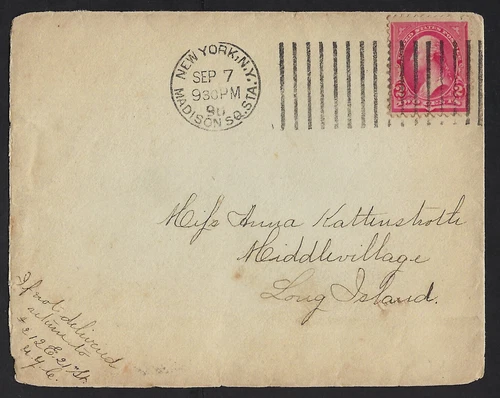 NEW YORK, N.Y.
SEP 7
930 PM
MADISON SQ. STA.
2 2
Miss Anna Kattenstroth
Middlevillage
Long Island.
If not delivered
return to
212 E. 21st St
N.Y.C.